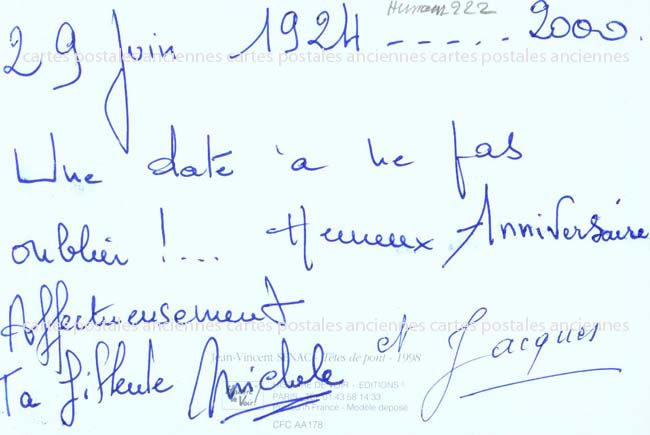 Humour 222
29 Juin 1924 ----.. 2000.
cartes postales anciennes cartes postales anciennes cartes postales anciennes
Une date à ne pas
oublier !... Heureux Anniversaire
Affectueusement
cartes postales anciennes cartes postales anciennes cartes postales anciennes
et Jacques
Jean-Vincent SENAC Têtes de pont - 1998
Ta filleule Michele
DE VOIR - EDITIONS
PARIS 01 43 58 14 33
in France - Modèle déposé
CFC AA178